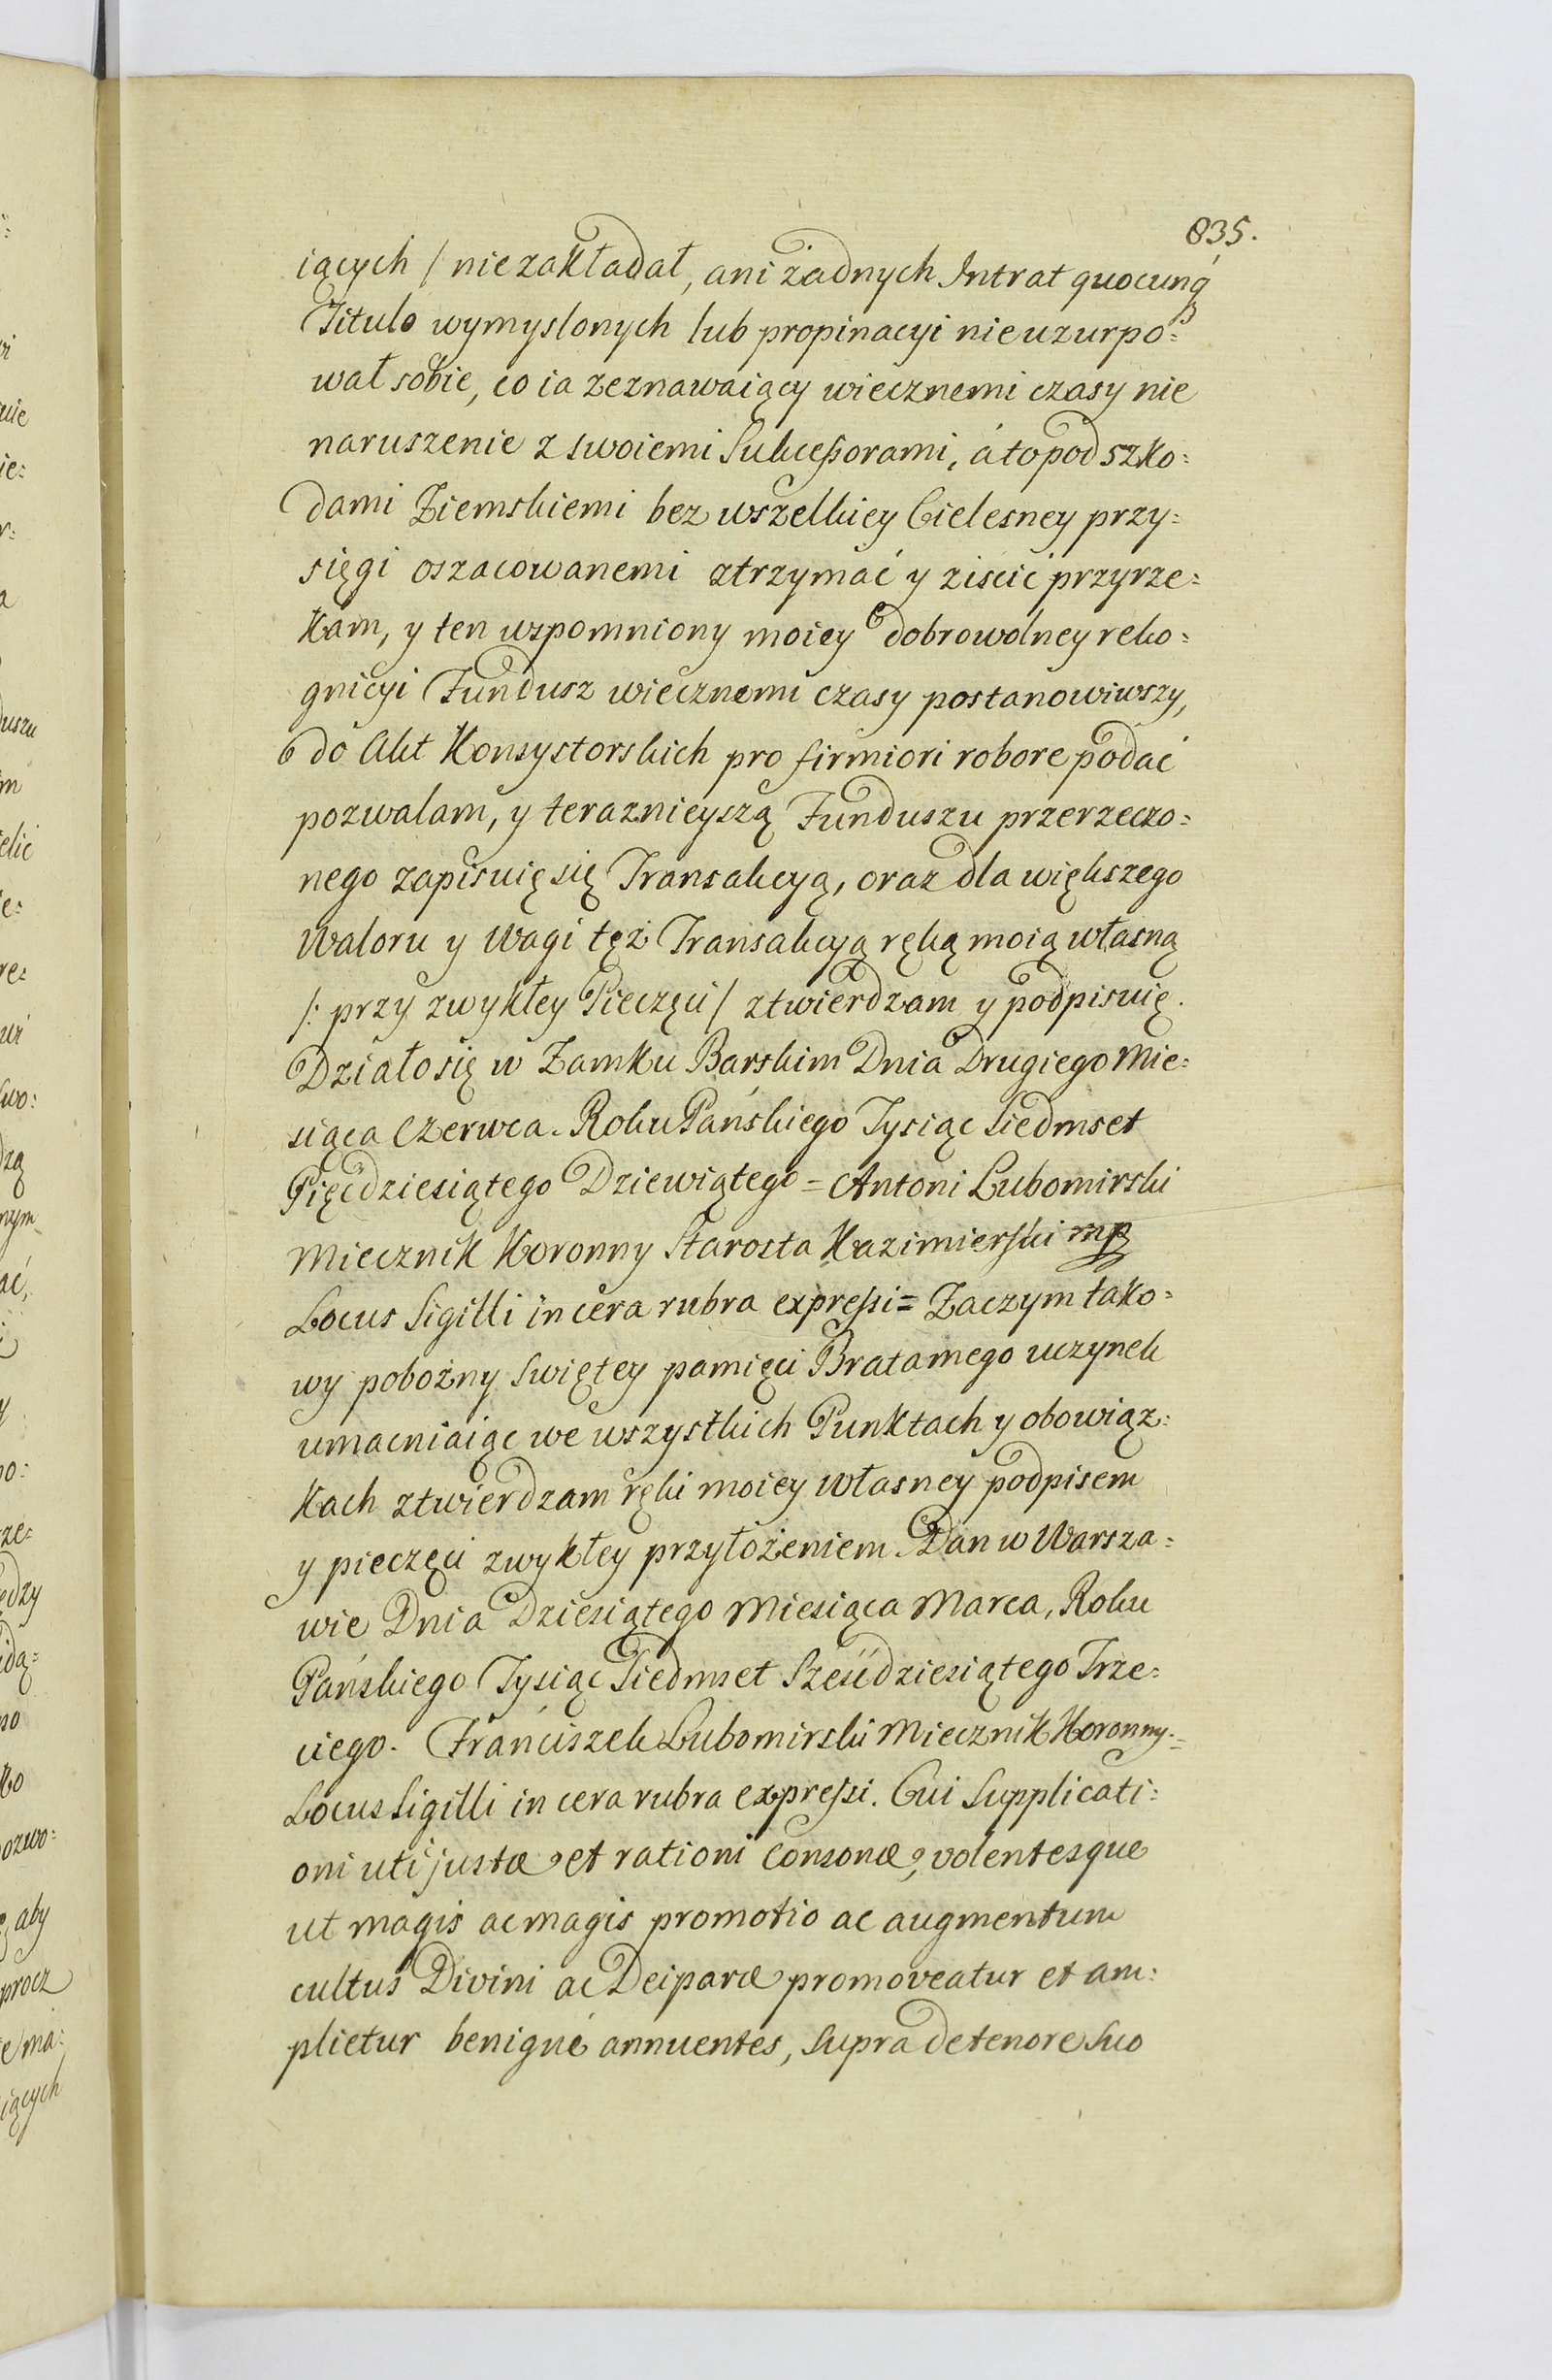 835.
iących / niezakładał, ani żadnych Intrat quocunq́
Titulo wymyslonych lub propinacyi nieuzurpo=
wał sobie, co ia zeznawaiący wiecznemi czasy nie
naruszenie z swoiemi Sukceßorami, á to pod szko=
dami Ziemskiemi bez wszelkiey Cielesney przy=
sięgi oszacowanemi ztrzymać y ziscić przyrze=
kam, y ten wspomniony moiey dobrowolney reko=
gnicyi Fundusz wiecznemi czasy postanowiwszy,
do Akt Konsystorskich pro firmiori robore podać
pozwalam, y teraznieyszą Funduszu przerzeczo=
nego zapisuię się Transakcyą, oraz dla większego
Waloru y Wagi tęż Transakcyą ręką moią własną
/: przy zwykłey Pieczęci / ztwierdzam y podpisuię.
Działo się w Zamku Barskim Dnia Drugiego Mie=
siąca Czerwca. Roku Pańskiego Tysiąc Siedmset
Pięćdziesiątego Dziewiątego = Antoni Lubomirski
Miecznik Koronny Starosta Kazimierski mp
Locus Sigilli in cera rubra expreßi = Zaczym tako=
wy pobożny Swiętey pamięci Bratamego uczynek
umacniaiąc we wszystkich Punktach y obowiąz=
kach ztwierdzam ręki moiey własney podpisem
y pieczęci zwykłey przyłożeniem. Dan w Warsza=
wie Dnia Dziesiątego Miesiąca Marca, Roku
Pańskiego Tysiąc Siedmset Sześćdziesiątego Trze=
ciego. Franciszek Lubomirski Miecznik Koronny. =
Locus Sigilli in cera rubra expreßi. Cui Supplicati=
oni uti justæ et rationi consonæ, volentesque
ut magis ac magis promotio ac augmentum
cultus Divini ac Deiparæ promoveatur et am=
plietur benigné annuentes, supra de tenore suo